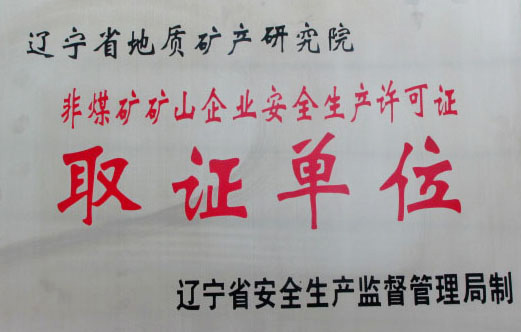 辽宁省地质矿产研究院
非煤矿矿山企业安全生产许可证
取证单位
辽宁省安全生产监督管理局制